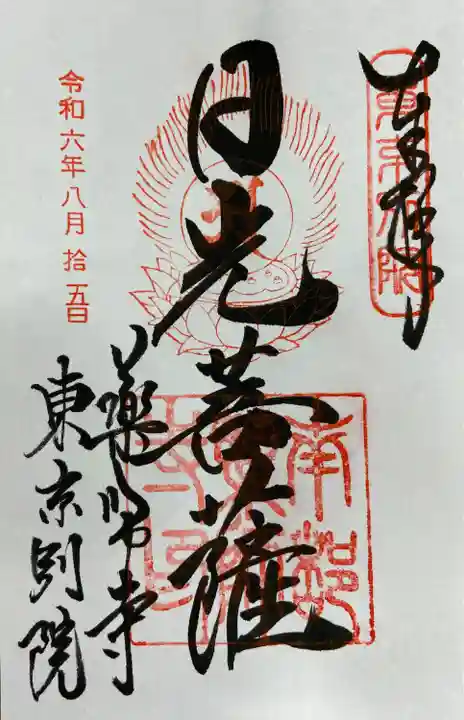 奉拝
東京別院
日光菩薩
薬師寺
東京別院
令和六年八月拾五日